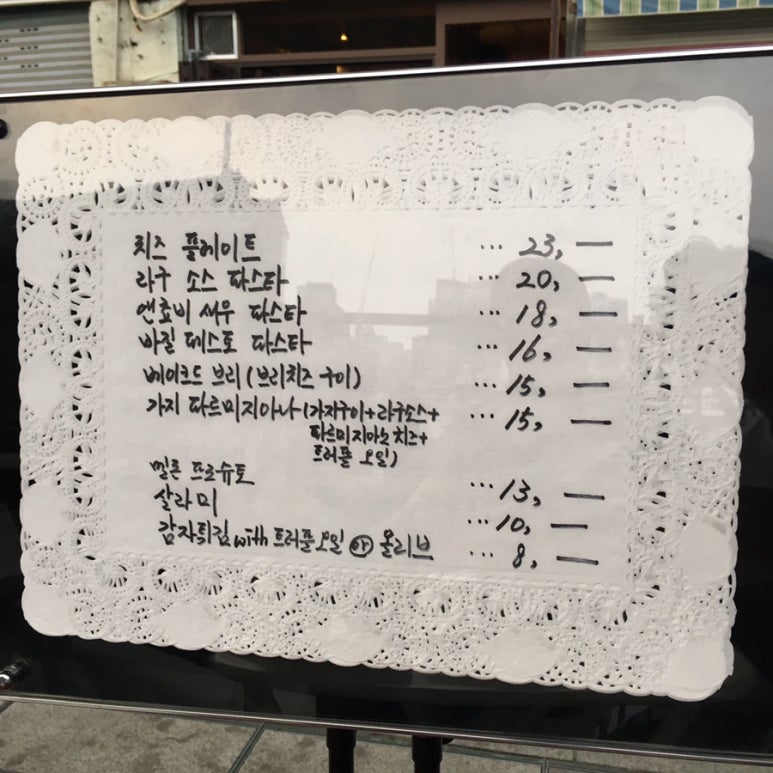 치즈 플레이트 ... 23, —
라구 소스 파스타 ... 20, —
앤쵸비 새우 파스타 ... 18, —
바질 페스토 파스타 ... 16, —
베이크드 브리 (브리치즈 구이) ... 15, —
가지 파르미지아나 (가지구이+라구소스+ ... 15, —
파르미지아노 치즈+
트러플 오일)
멜론 프로슈토 ... 13, —
살라미 ... 10, —
감자튀김 with 트러플오일 or 올리브 ... 8, —